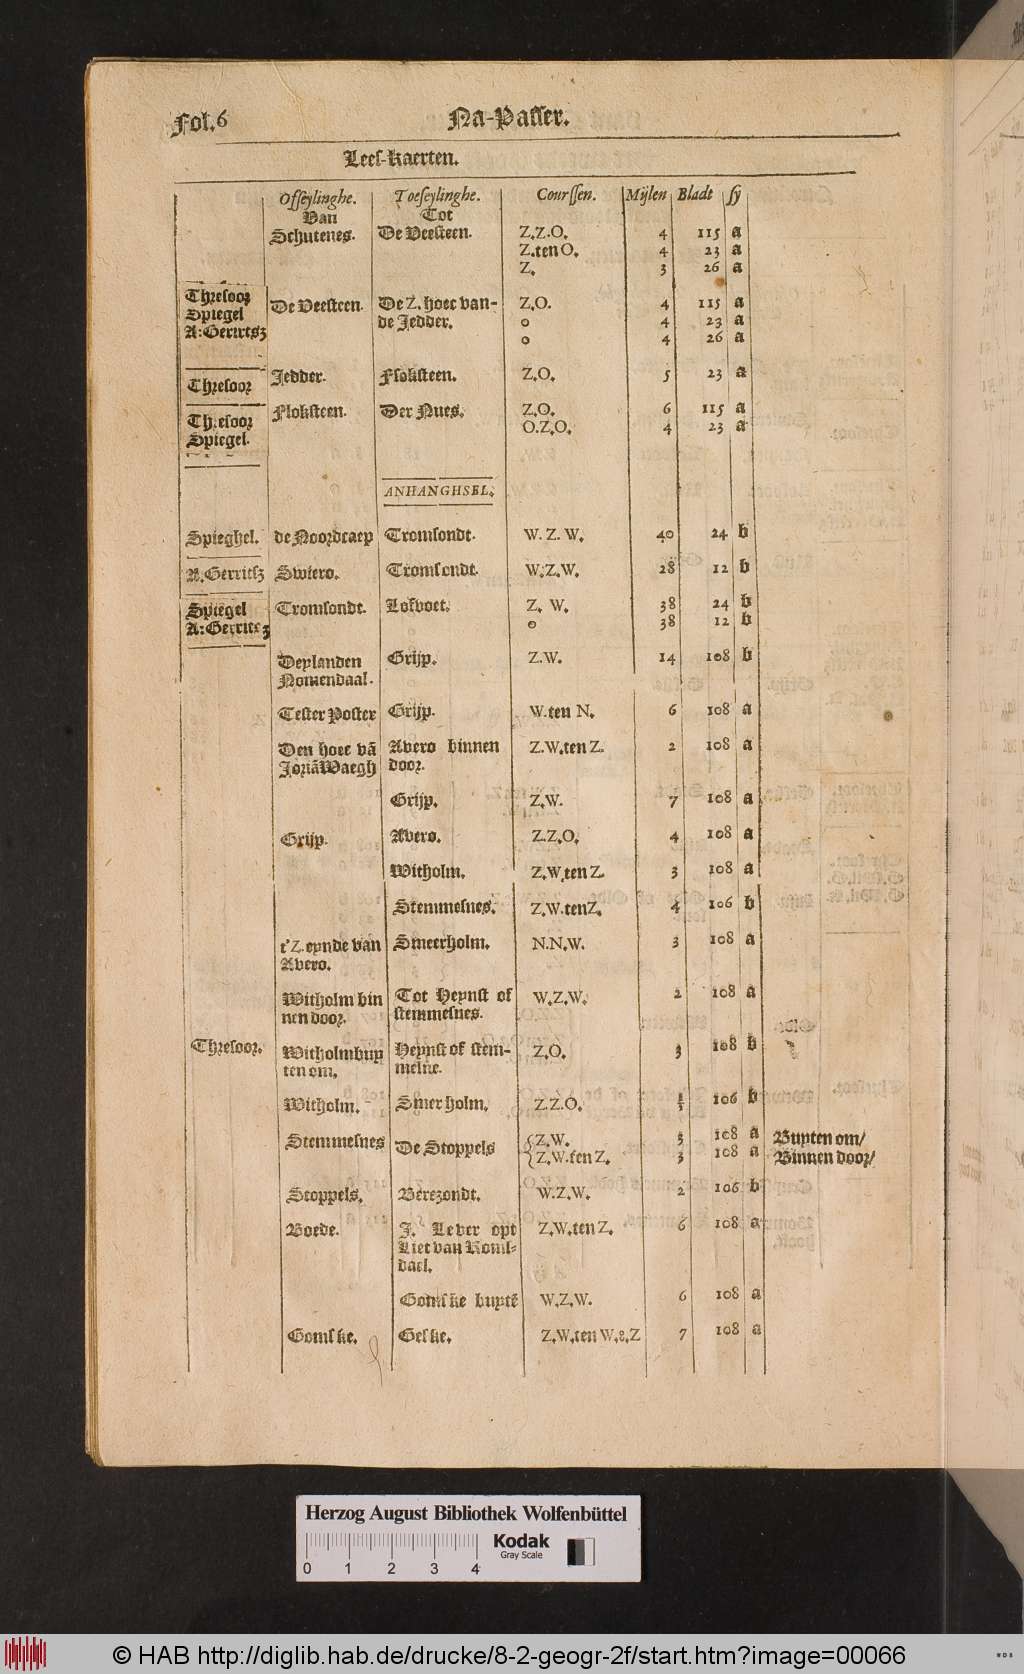 Fol. 6 Na-Passer.
Lees-kaerten.
Offeylinghe. Toeseylinghe. Courssen. Mijlen Bladt sy
Van Tot
Schutenes. De Veesteen. Z.Z.O. 4 115 a
Z.ten O. 4 23 a
Z. 3 26 a
Thresoor De Veesteen. De Z. hoec van- Z.O. 4 115 a
Spiegel de Jedder. o 4 23 a
A:Gerritsz o 4 26 a
Thresoor Jedder. Floksteen. Z.O. 5 23 a
Thresoor Floksteen. Der Nues. Z.O. 6 115 a
Spiegel. O.Z.O. 4 23 a
ANHANGHSEL.
Spieghel. de Noordcaep Tromsondt. W. Z. W. 40 24 b
A.Gerritsz Swiero. Tromsondt. W.Z.W. 28 12 b
Spiegel Tromsondt. Lofvoet. Z. W. 38 24 b
A:Gerritsz o 38 12 b
Deylanden Grijp. Z.W. 14 108 b
Nomendaal.
Tester Poster Grijp. W.ten N. 6 108 a
Den hoec vã Avero binnen Z.W.ten Z. 2 108 a
JoriãWaegh door.
Grijp. Z.W. 7 108 a
Grijp. Avero. Z.Z.O. 4 108 a
Witholm. Z.W.ten Z. 3 108 a
Stemmesnes. Z.W.tenZ. 4 106 b
t'Z.eynde van Smeerholm. N.N.W. 3 108 a
Avero.
Witholm bin Tot Heynst of W.Z.W. 2 108 a
nen door. stemmesnes.
Thresoor. Witholmbuy Heynst of stem- Z.O. 3 108 b
ten om. mesne.
Witholm. Smer holm. Z.Z.O. 106 b
Stemmesnes De Stoppels {Z.W. 3 108 a Buyten om/
{Z.W.ten Z. 3 108 a Binnen door/
Stoppels. Berezondt. W.Z.W. 2 106 b
Boede. J. Lever opt Z.W.ten Z. 6 108 a
Liet van Romsdael.
Gomske buytẽ W.Z.W. 6 108 a
Gomske. Geske. Z.W.ten W.&.Z 7 108 a
Herzog August Bibliothek Wolfenbüttel
Kodak
Gray Scale
0 1 2 3 4
© HAB http://diglib.hab.de/drucke/8-2-geogr-2f/start.htm?image=00066